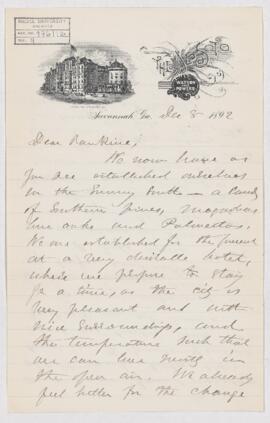 The De Soto
Watson & Powers
Savannah, Ga. Dec 8 1892
Dear Rankine,
We now have as
you see established ourselves
in the Sunny South — a land
of Southern pines, Magnolias
live oaks and Palmettos.
We are established for the present
at a very desirable hotel,
where we propose to stay
for a time, as the city is
very pleasant and with
nice surroundings, and
the temperature such that
we can live mostly in
the open air. We already
feel better for the change